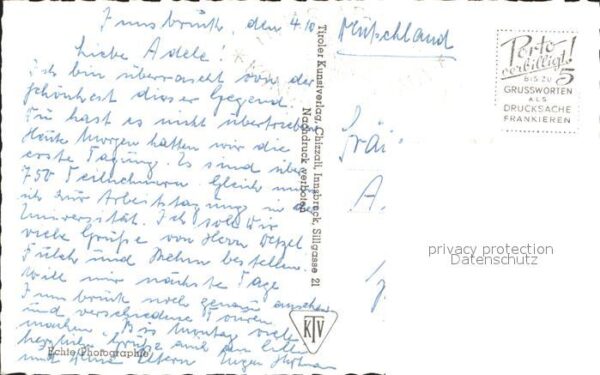 Innsbruck, den 4.10
Liebe Adele!
Ich bin überrascht von der
Schönheit dieser Gegend.
Du hast es nicht übertrieben
Heute Morgen hatten wir die
erste Tagung. Es sind über
750 Teilnehmern. Gleich muß
ich zur Arbeitstagung in der
Universität. Ich soll Dir
viele Grüße von Herrn
und bestellen.
Will mir nächste Tage
Innsbruck noch genau ansehen
und verschiedene Touren
machen. Bis Montag viele
herzliche Grüße auch an
und Deine Eltern
Echte Photographie
Tiroler Kunstverlag, Chizzali, Innsbruck, Sillgasse 21
Nachdruck verboten
KTV
Deutschland
Porto
verbilligt!
BIS ZU 5
GRUSSWORTEN
ALS
DRUCKSACHE
FRANKIEREN
Frl.
A.
privacy protection
Datenschutz